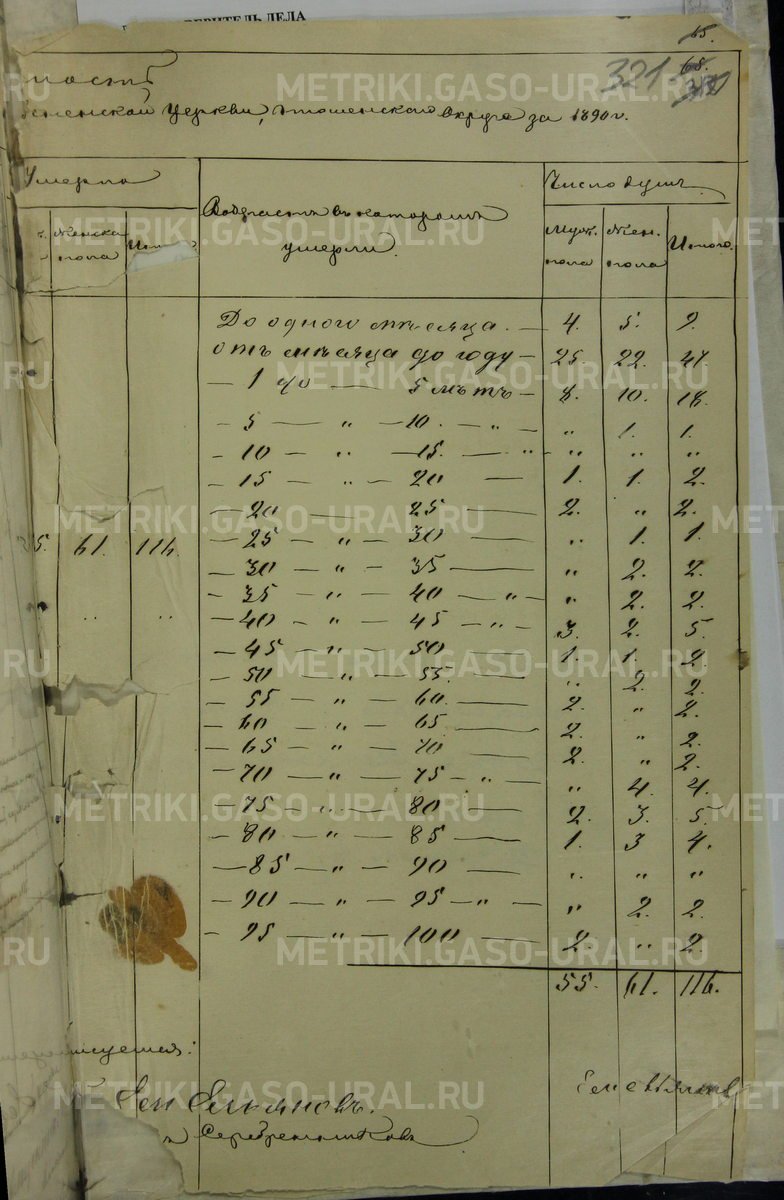 ВЕРИТЕЛЬ ДЕЛА
65.
321 68.
Церкви, округа за 1890 г.
Умерло
Женска пола Итого
Возрастъ въ которомъ умерли.
Число душъ.
Муж. пола Жен. пола Итого.
До одного мѣсяца. — 4. 5. 9.
отъ мѣсяца до году — 25. 22. 47.
— 1 до — 5 лѣтъ — 8. 10. 18.
— 5 — " — 10. — " — " 1. 1.
— 10 — " — 15. — " — " " "
— 15 — " — 20 — 1. 1. 2.
— 20 — 25 — 2. " 2.
— 25 — " — 30 — " 1. 1.
— 30 — " — 35 — " 2. 2.
— 35 — " — 40 — " — " 2. 2.
— 40 — " — 45 — " — 3. 2. 5.
— 45 — " — 50 — 1. 1. 2.
— 50 — " — 55. — " 2. 2.
— 55 — " — 60. — 2. " 2.
— 60 — " — 65 — 2. " 2.
— 65 — " — 70 — 2. " 2.
— 70 — " — 75 — " — " 4. 4.
— 75 — " — 80 — 2. 3. 5.
— 80 — " — 85 — 1. 3 4.
— 85 — " — 90 — " " "
— 90 — " — 95 — " — " 2. 2.
— 95 — " — 100 — 2. " 2.
55. 61. 116.
5. 61. 116.
" "
Серебренниковъ
METRIKI.GASO-URAL.RU